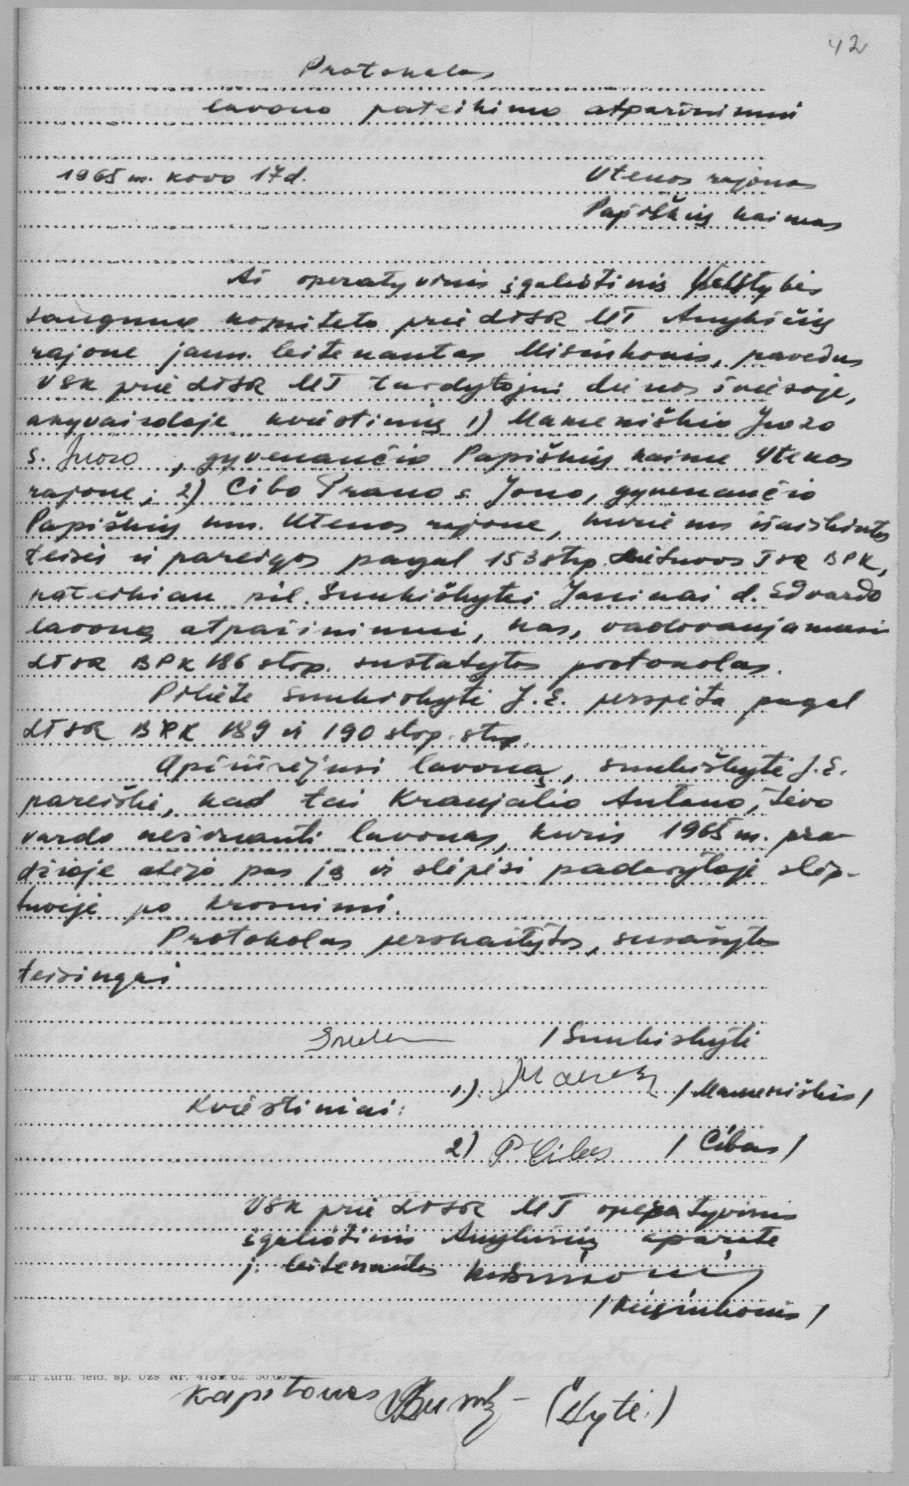 42
Protokolas
lavono pateikimo atpažinimui
1965 m. kovo 17 d. Utenos rajonas
Papiškių kaimas
Aš operatyvinis įgaliotinis Valstybės
saugumo komiteto prie LTSR MT Anykščių
rajone jaun. leitenantas Misiukonis, pavedus
VSK prie LTSR MT tardytojui dienos šviesoje,
akyvaizdoje kviestinių 1) Mameniškio Juozo
s. Juozo, gyvenančio Papiškių kaime Utenos
rajone; 2) Cibo Prano s. Jono, gyvenančio
Papiškių km. Utenos rajone, kuriems išaiškintos
teisės ir pareigos pagal 153 stp. Lietuvos TSR BPK,
pateikiau pil. Šuukiškytei Janinai d. Edvardo
lavoną atpažinimui, kas, vadovaujamasi
LTSR BPK 186 stp. sustatytas protokolas.
Pilietė J. E. perspėta pagal
LTSR BPK 189 ir 190 stp. stp.
Apžiūrėjusi lavoną, J. E.
pareiškė, kad tai Kraujalio Antano, tėvo
vardo nežinanti lavonas, kuris 1965 m. pra-
džioje atėjo pas ją ir slėpėsi padarytoje slėp-
tuvėje po krosnimi.
Protokolas perskaitytas, surašytas
teisingai
Kviestiniai: 1) / Mameniškis /
2) P Cibas / Cibas /
VSK prie LTSR MT operatyvinis
įgaliotinis Anykščių aparate
j. leitenantas
/ Misiukonis /
Kapitonas